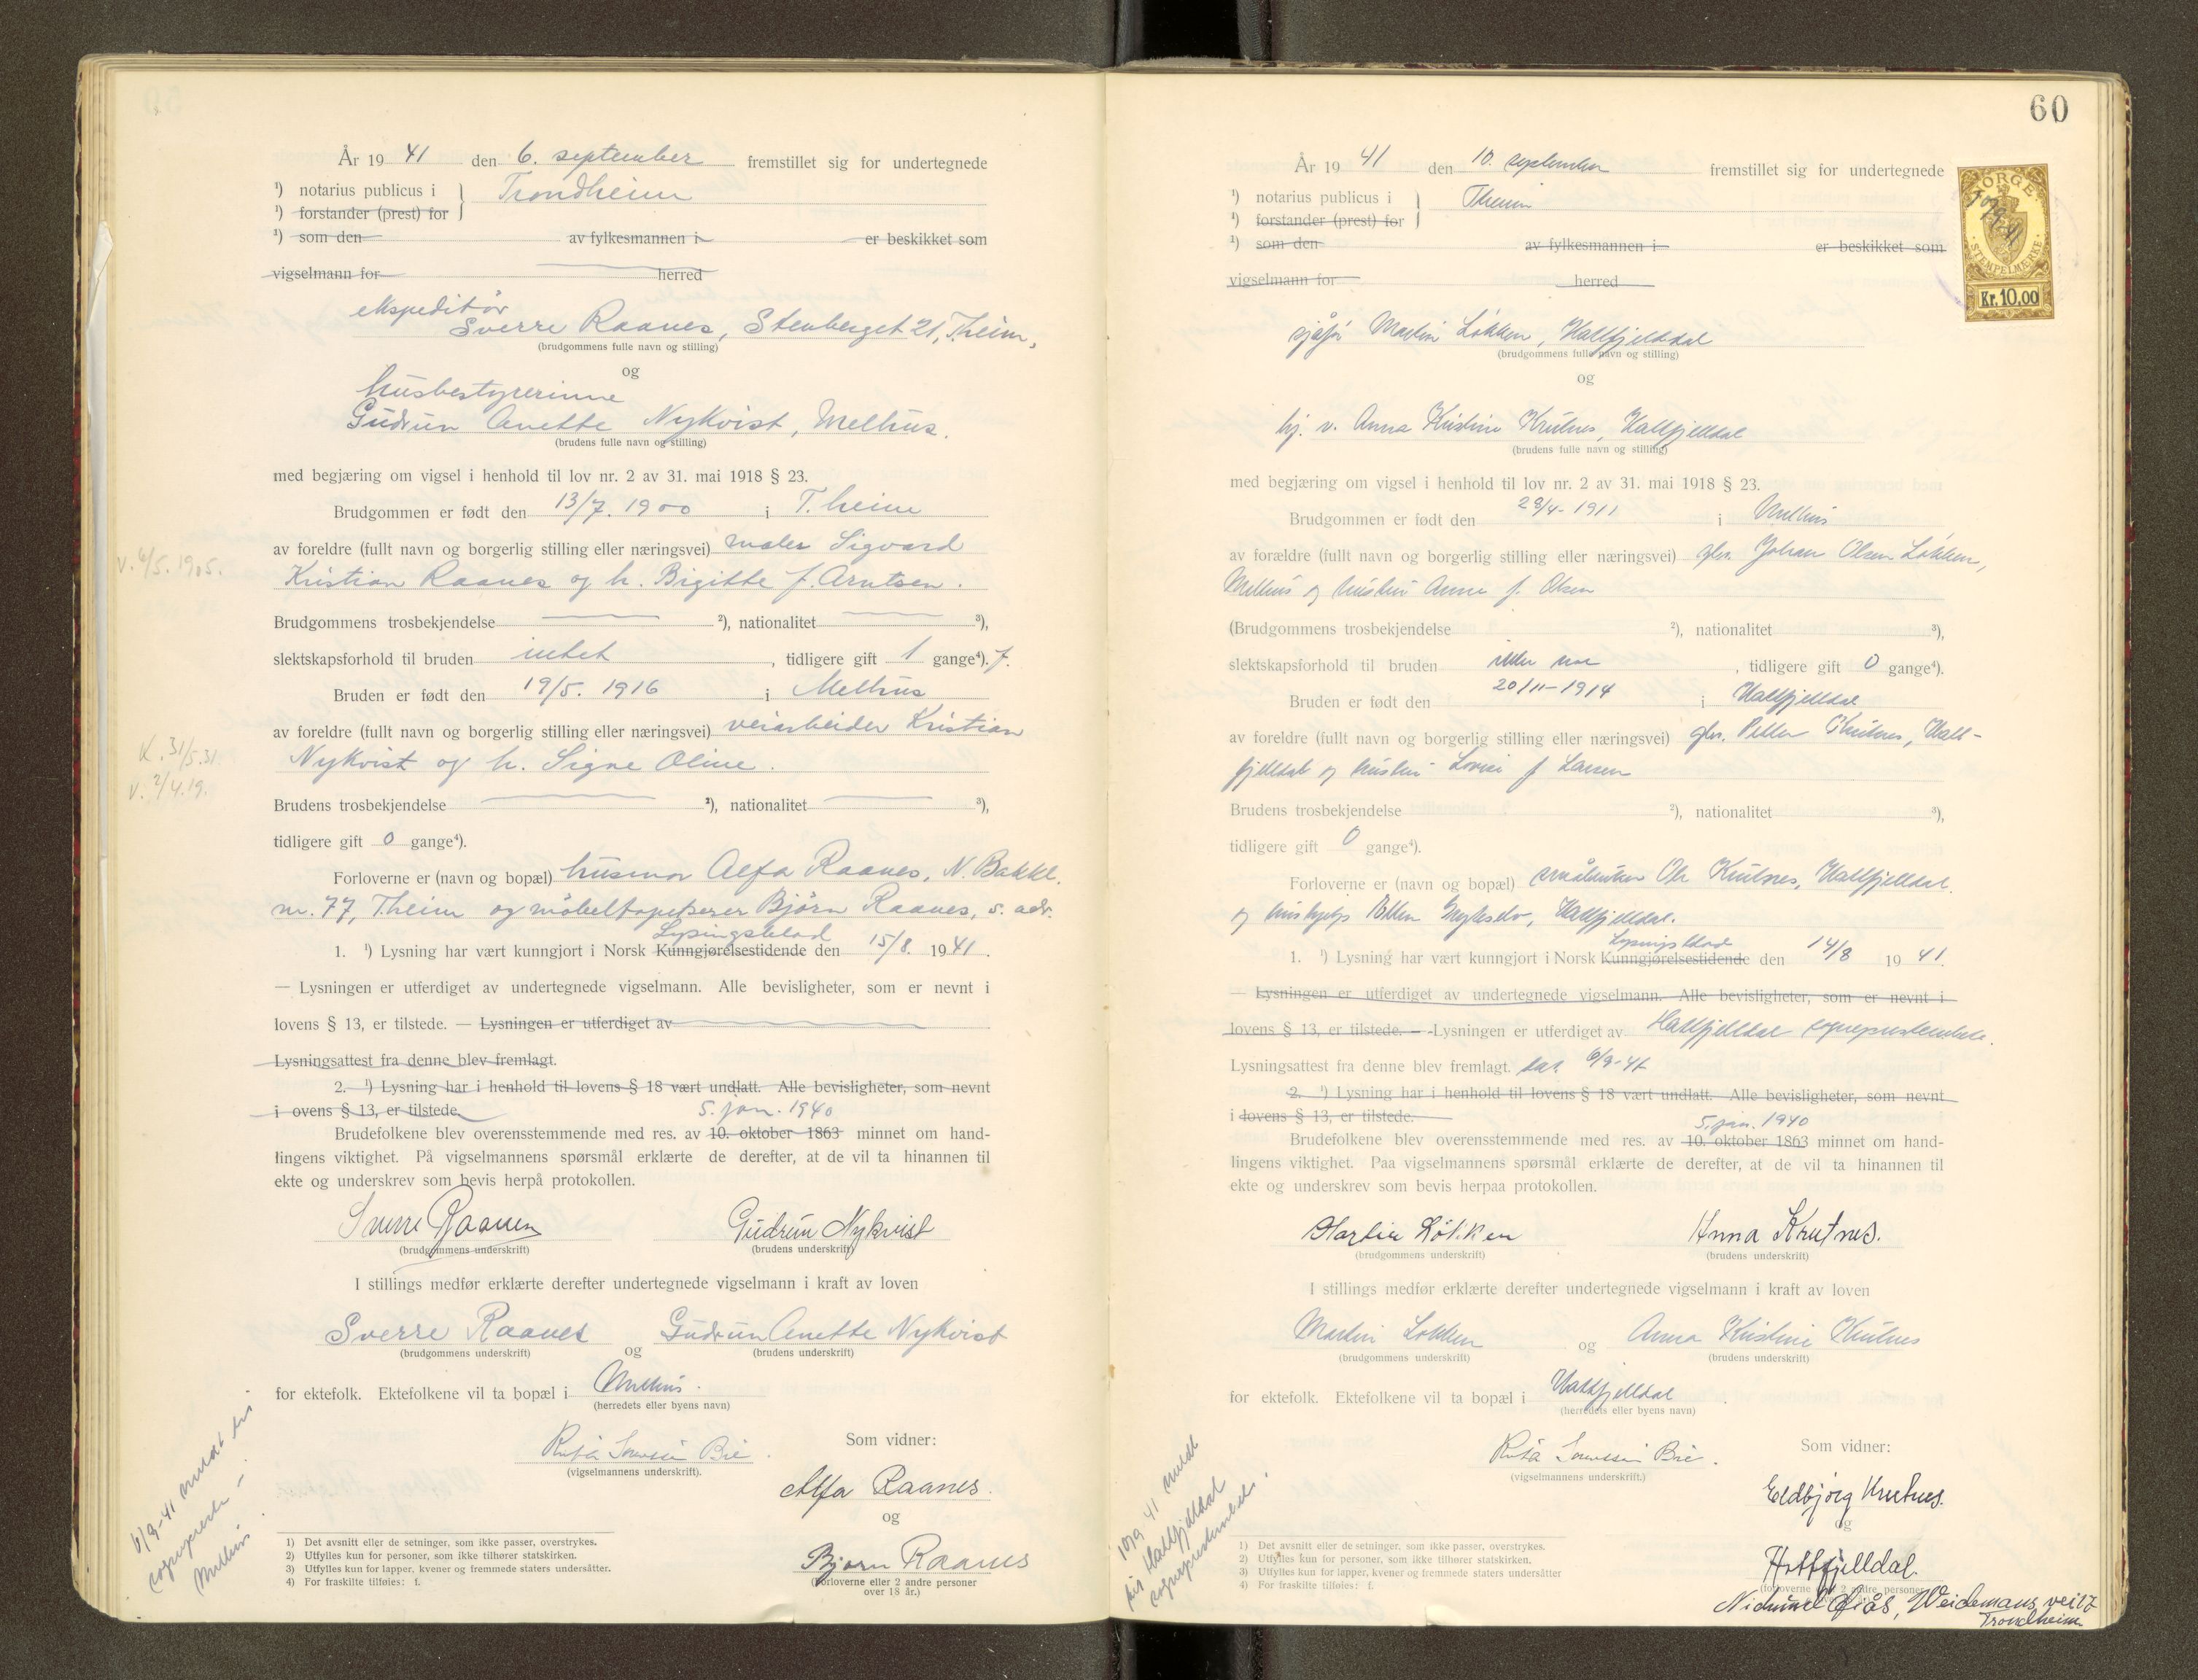 År 19 41 den 6. september fremstillet sig for undertegnede
¹) notarius publicus i } Trondheim
¹) forstander (prest) for
¹) som den av fylkesmannen i er beskikket som
vigselmann for herred
ekspeditør
Sverre Raanes, Stenberget 21, T.heim,
(brudgommens fulle navn og stilling)
og
husbestyrerinne
Gudrun Anette Nykvist, Melhus.
(brudens fulle navn og stilling)
med begjæring om vigsel i henhold til lov nr. 2 av 31. mai 1918 § 23.
Brudgommen er født den 13/7. 1900 i T.heim
av foreldre (fullt navn og borgerlig stilling eller næringsvei) maler Sigvard
v. 6/5. 1905.
Kristian Raanes og h. Birgitte f. Arntsen.
Brudgommens trosbekjendelse ²), nationalitet ³),
slektskapsforhold til bruden intet, tidligere gift 1 gange⁴). f.
Bruden er født den 19/5. 1916 i Melhus
av foreldre (fullt navn og borgerlig stilling eller næringsvei) veiarbeider Kristian
K. 31/5.31.
Nykvist og h. Signe Oline.
v. 2/4.19.
Brudens trosbekjendelse ²), nationalitet ³),
tidligere gift 0 gange⁴).
Forloverne er (navn og bopæl) husmor Alfa Raanes, N. Bakkl.
nr. 77, T.heim og møbeltapetserer Bjørn Raanes, s. adr.
Lysingsblad
1. ¹) Lysning har vært kunngjort i Norsk Kunngjørelsestidende den 15/8. 19 41.
— Lysningen er utferdiget av undertegnede vigselmann. Alle bevisligheter, som er nevnt i
lovens § 13, er tilstede. — Lysningen er utferdiget av
Lysningsattest fra denne blev fremlagt.
2. ¹) Lysning har i henhold til lovens § 18 vært undlatt. Alle bevisligheter, som nevnt
i ovens § 13, er tilstede.
5. jan. 1940
Brudefolkene blev overensstemmende med res. av 10. oktober 1863 minnet om hand-
lingens viktighet. På vigselmannens spørsmål erklærte de derefter, at de vil ta hinannen til
ekte og underskrev som bevis herpå protokollen.
Sverre Raanes Gudrun Nykvist
(brudgommens underskrift) (brudens underskrift)
I stillings medfør erklærte derefter undertegnede vigselmann i kraft av loven
Sverre Raanes og Gudrun Anette Nykvist
(brudgommens underskrift) (brudens underskrift)
for ektefolk. Ektefolkene vil ta bopæl i Melhus.
(herredets eller byens navn)
Som vidner:
(vigselmannens underskrift).
Alfa Raanes.
og
Bjørn Raanes
(Forloverne eller 2 andre personer
over 18 år.)
6/9-41 meldt til
sogneprest
Melhus
1) Det avsnitt eller de setninger, som ikke passer, overstrykes.
2) Utfylles kun for personer, som ikke tilhører statskirken.
3) Utfylles kun for lapper, kvener og fremmede staters undersåtter.
4) For fraskilte tilføies: f.
60
NORGE
10/9 41
STEMPELMÆRKE
Kr. 10,00
År 19 41 den 10. september fremstillet sig for undertegnede
¹) notarius publicus i } Theim
¹) forstander (prest) for
¹) som den av fylkesmannen i er beskikket som
vigselmann for herred
sjåfør Martin Løkken, Hattfjelldal
(brudgommens fulle navn og stilling)
og
hj. v. Anna Kristine Krutnes, Hattfjelldal
(brudens fulle navn og stilling)
med begjæring om vigsel i henhold til lov nr. 2 av 31. mai 1918 § 23.
Brudgommen er født den 28/4-1911 i Melhus
av forældre (fullt navn og borgerlig stilling eller næringsvei) gbr. Johan Olsen Løkken,
Melhus og hustru Anne f. Olsen
(Brudgommens trosbekjendelse ²), nationalitet ³),
slektskapsforhold til bruden, tidligere gift 0 gange⁴).
Bruden er født den 20/11-1914 i Hattfjelldal
av foreldre (fullt navn og borgerlig stilling eller næringsvei) gbr. Petter Krutnes, Hatt-
fjelldal og hustru Lovise f Larsen
Brudens trosbekjendelse ²), nationalitet ³),
tidligere gift 0 gange⁴).
Forloverne er (navn og bopæl) småbruker Ole Krutnes, Hattfjelldal.
og Petter, Hattfjelldal.
Lysingsblad
1. ¹) Lysning har vært kunngjort i Norsk Kunngjørelsestidende den 14/8 19 41.
— Lysningen er utferdiget av undertegnede vigselmann. Alle bevisligheter, som er nevnt i
lovens § 13, er tilstede. — -Lysningen er utferdiget av Hattfjelldal sogneprestembete.
Lysningsattest fra denne blev fremlagt. dat. 6/9-41
2. ¹) Lysning har i henhold til lovens § 18 vært undlatt. Alle bevisligheter, som nevnt
i lovens § 13, er tilstede.
5. jan. 1940
Brudefolkene blev overensstemmende med res. av 10. oktober 1863 minnet om hand-
lingens viktighet. Paa vigselmannens spørsmål erklærte de derefter, at de vil ta hinannen til
ekte og underskrev som bevis herpaa protokollen.
Martin Løkken Anna Krutnes.
(brudgommens underskrift) (brudens underskrift)
I stillings medfør erklærte derefter undertegnede vigselmann i kraft av loven
Martin Løkken og Anna Kristine Krutnes
(brudgommens underskrift) (brudens underskrift)
for ektefolk. Ektefolkene vil ta bopæl i Hattfjelldal.
(herredets eller byens navn)
Som vidner:
(vigselmannens underskrift.)
Eldbjørg Krutnes.
og
Hattfjelldal.
(forloverne eller 2 andre personer
Weidemans vei 17
Trondheim
10/9 41 meldt
til Hattfjelldal
sogneprestembede.
1) Det avsnitt eller de setninger, som ikke passer, overstrykes.
2) Utfylles kun for personer, som ikke tilhører statskirken.
3) Utfylles kun for lapper, kvener og fremmede staters undersåtter
4) For fraskilte tilføies: f.